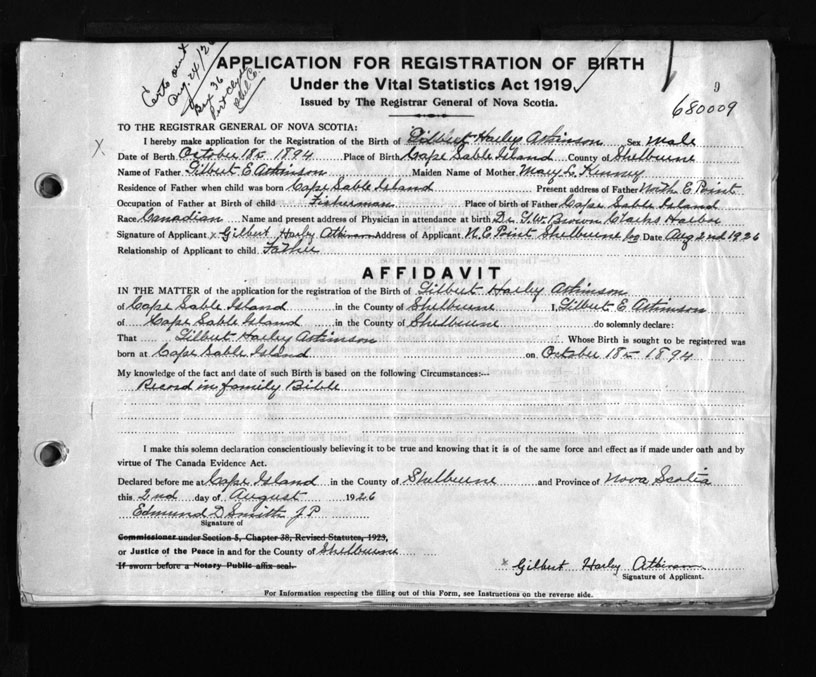 Certo sent
Aug. 24/26
Box 36
Port Clyde
Shel Co.
APPLICATION FOR REGISTRATION OF BIRTH
Under the Vital Statistics Act 1919
Issued by The Registrar General of Nova Scotia.
9
680009
TO THE REGISTRAR GENERAL OF NOVA SCOTIA:
X I hereby make application for the Registration of the Birth of Gilbert Harley Atkinson Sex Male
Date of Birth October 18th 1894 Place of Birth Cape Sable Island County of Shelburne
Name of Father Gilbert E Atkinson Maiden Name of Mother Mary L. Kenney
Residence of Father when child was born Cape Sable Island Present address of Father North E Point
Occupation of Father at Birth of child Fisherman Place of birth of Father Cape Sable Island
Race Canadian Name and present address of Physician in attendance at birth Dr T.W. Brown Clarks Harbor
Signature of Applicant x Gilbert Harley Atkinson Address of Applicant N. E Point Shelburne Co Date Aug 2nd 1926
Relationship of Applicant to child Father
AFFIDAVIT
IN THE MATTER of the application for the registration of the Birth of Gilbert Harley Atkinson
of Cape Sable Island in the County of Shelburne I, Gilbert E Atkinson
of Cape Sable Island in the County of Shelburne do solemnly declare:
That Gilbert Harley Atkinson Whose Birth is sought to be registered was
born at Cape Sable Island on October 18th 1894
My knowledge of the fact and date of such Birth is based on the following Circumstances:—
Record in family Bible
I make this solemn declaration conscientiously believing it to be true and knowing that it is of the same force and effect as if made under oath and by
virtue of The Canada Evidence Act.
Declared before me at Cape Island in the County of Shelburne and Province of Nova Scotia
this 2nd day of August 1926
Edmund D Smith J P
Signature of
Commissioner under Section 5, Chapter 38, Revised Statutes, 1923,
or Justice of the Peace in and for the County of Shelburne
If sworn before a Notary Public affix seal.
x Gilbert Harley Atkinson
Signature of Applicant.
For Information respecting the filling out of this Form, see Instructions on the reverse side.